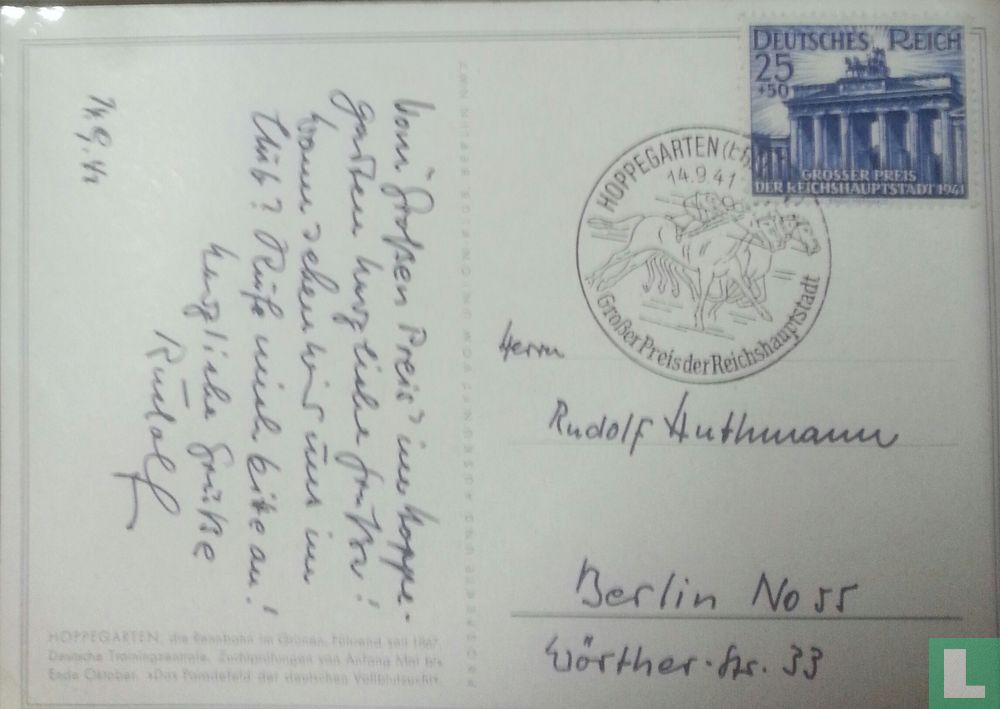 14.9.41
Vom "Großen Preis" in Hoppe-
garten herzliche Grüße!
Wann sehen wir uns im
Club? Rufe mich bitte an!
Herzliche Grüße
Rudolf
HOPPEGARTEN, die Rennbahn im Grünen. Führend seit 1867.
Deutsche Trainingzentrale. Zuchtprüfungen von Anfang Mai bis
Ende Oktober. »Das Paradefeld der deutschen Vollblutzucht«.
DEUTSCHES REICH
25
+50
GROSSER PREIS
DER REICHSHAUPTSTADT 1941
HOPPEGARTEN
14.9.41
Großer Preis der Reichshauptstadt
Herrn
Rudolf Huthmann
Berlin No 55
Wörther-Str. 33
L